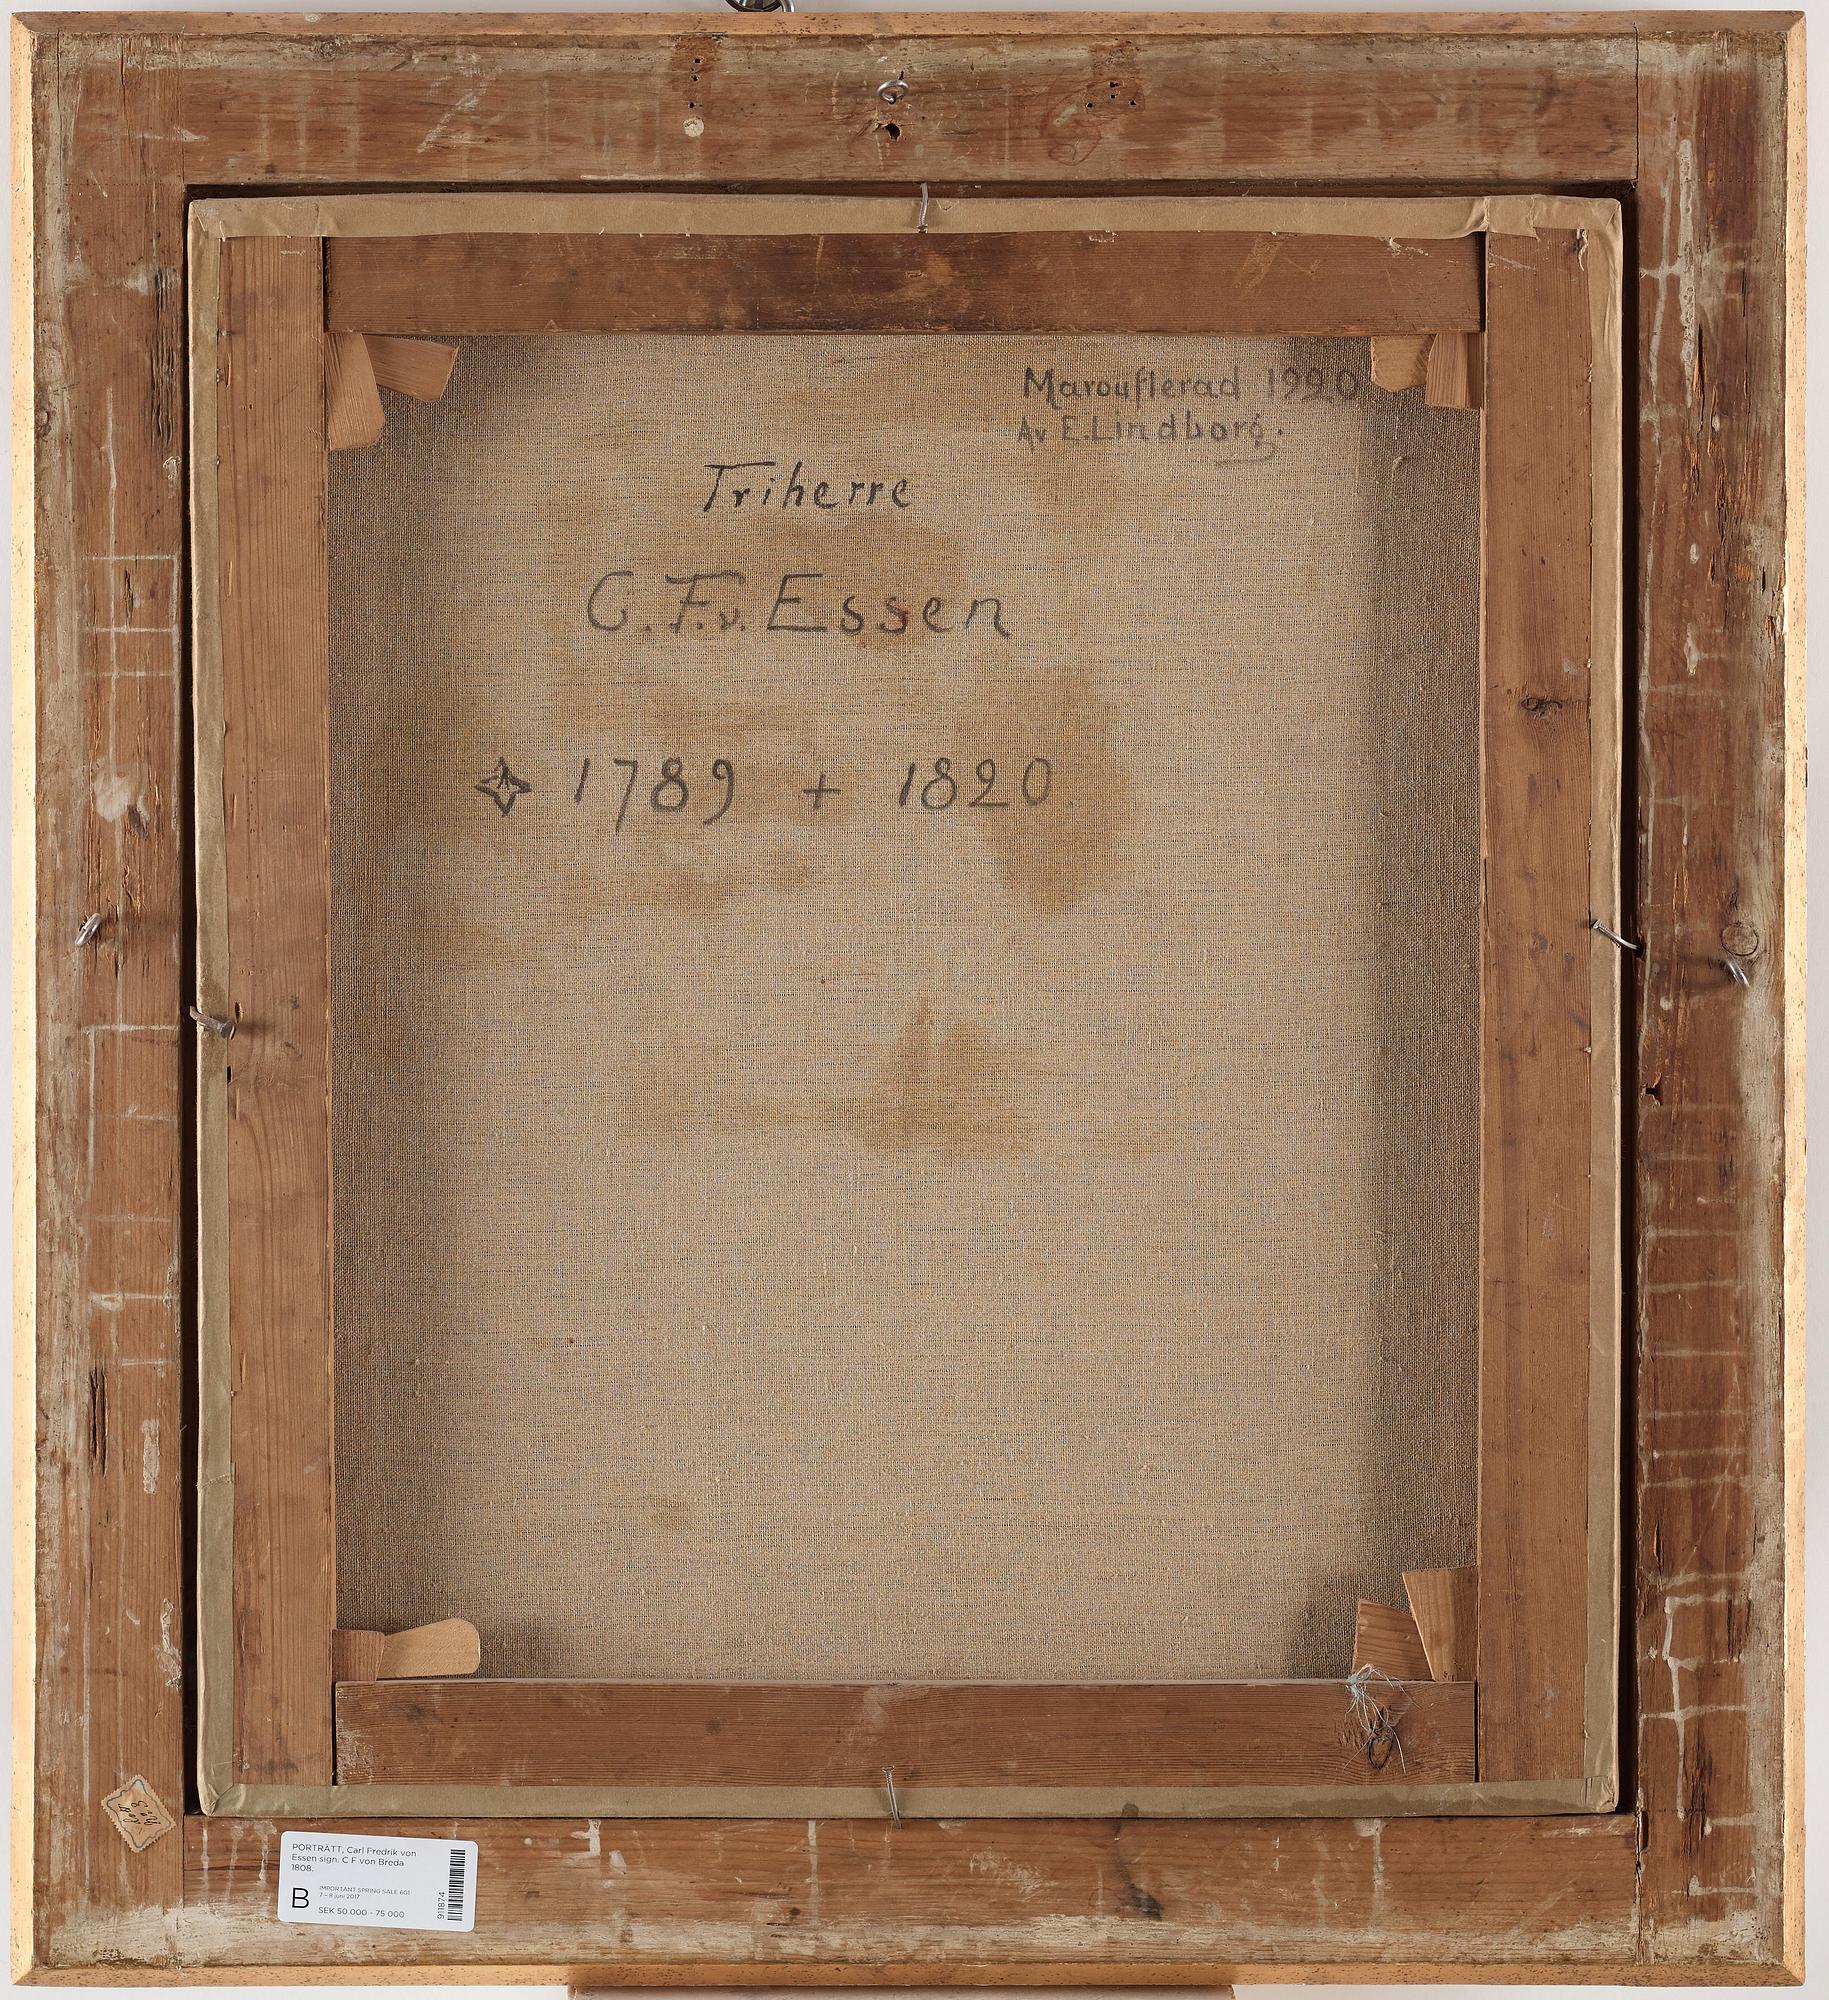 Marouflerad 1920
Av E. Lindborg.
Triherre
C. F. v. Essen
1789 + 1820.
PORTRÄTT, Carl Fredrik von
Essen sign. C F von Breda
1808.
B
IMPORTANT SPRING SALE 601
7 – 8 juni 2017
SEK 50 000 - 75 000
911874